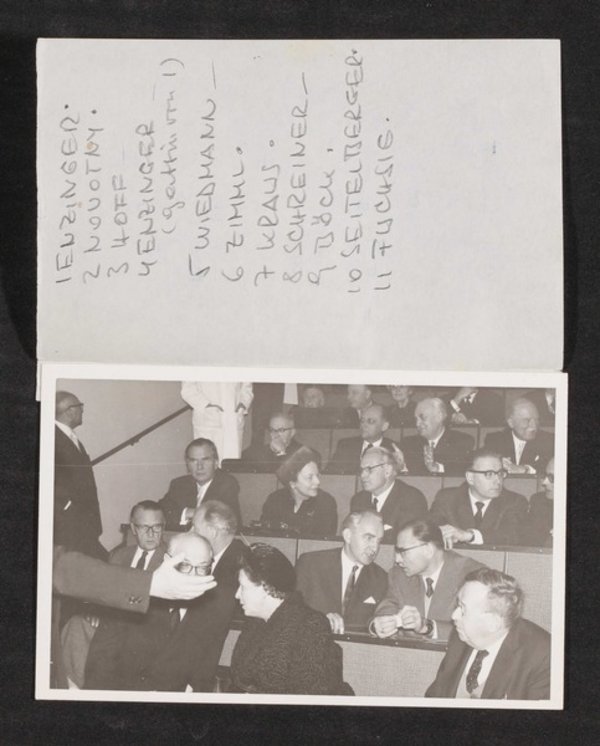 1 ENZINGER.
2 NOVOTNY.
3 HOFF
4 ENZINGER —
(gattin von 1)
5 WIEDMANN —
6 ZIMML.
7 KRAUS.
8 SCHREINER —
9 BÖCK.
10 SEITELBERGER.
11 FUCHSIG.